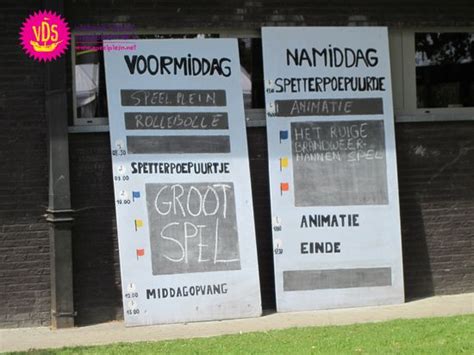 VDS
VOORMIDDAG
SPEELPLEIN
ROLLEBOLLE
08.30
SPETTERPOEPUURTJE
09.00
10.00
GROOT
SPEL
MIDDAGOPVANG
NAMIDDAG
SPETTERPOEPUURTJE
ANIMATIE
HET RUIGE
BRANDWEER-
MANNEN SPEL
ANIMATIE
EINDE